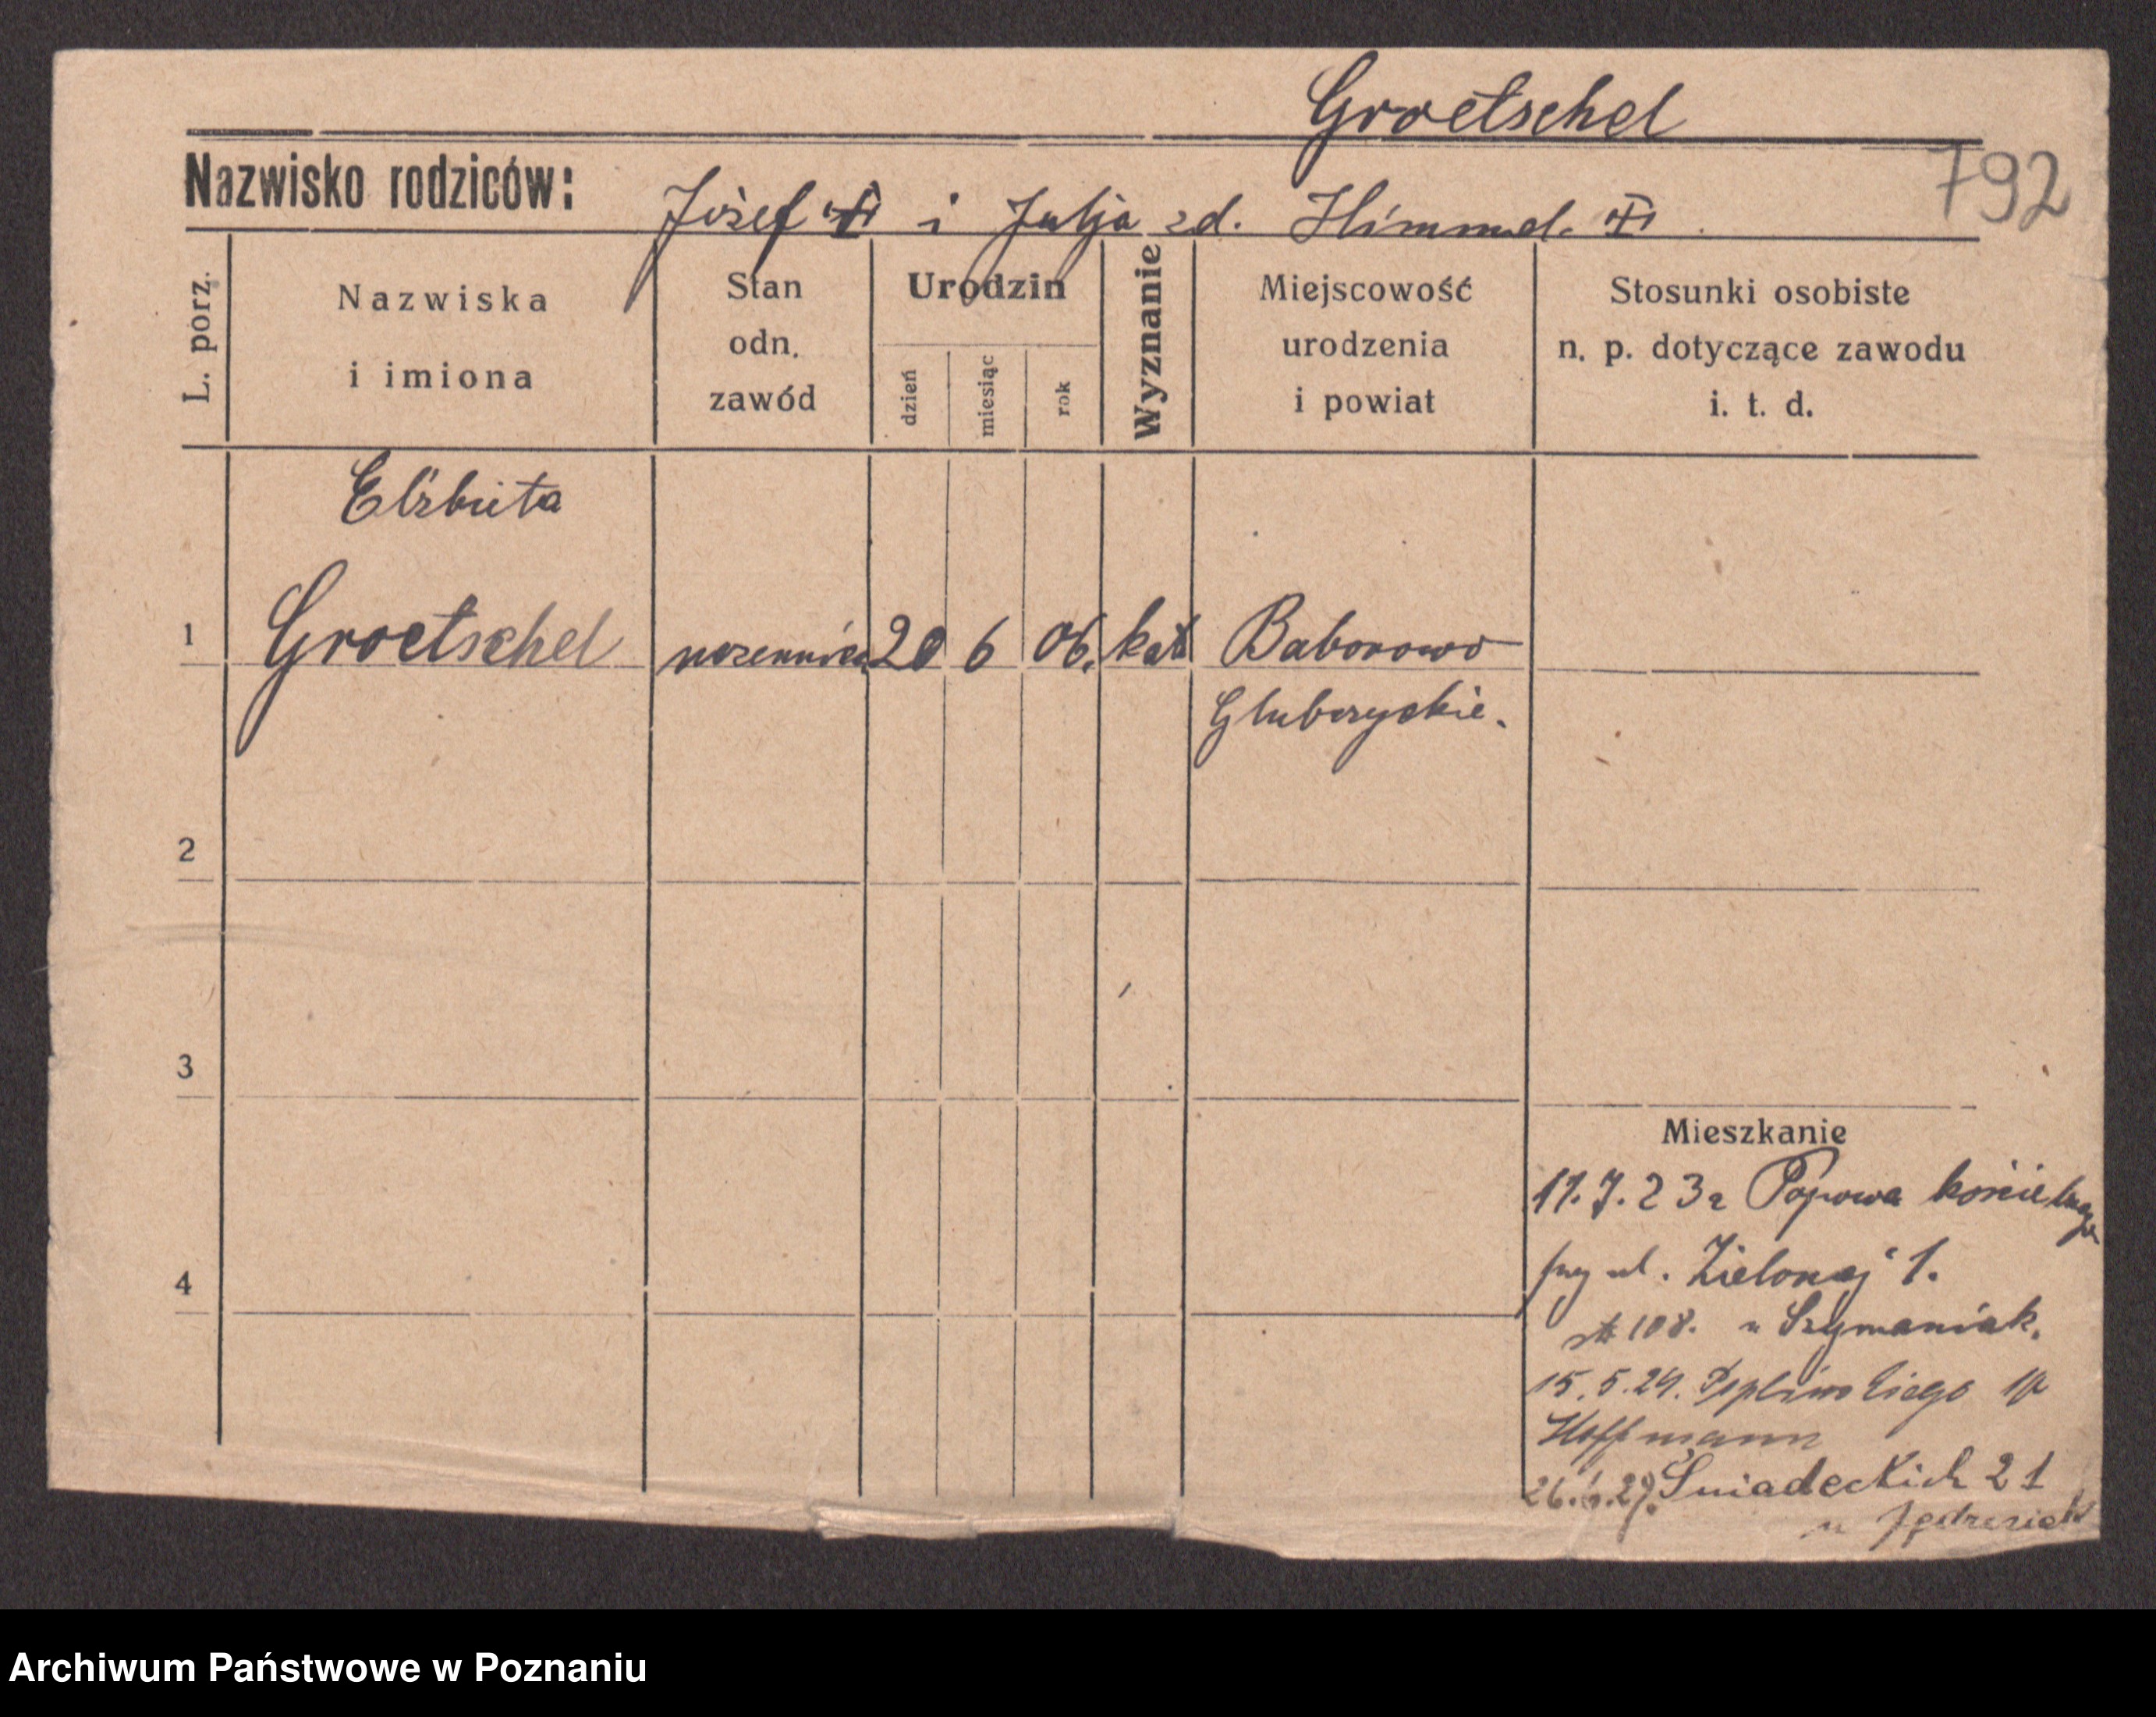 Groetschel
792
Nazwisko rodziców: Józef i Julja zd. Himmel.
L. porz.
Nazwiska
i imiona
Stan
odn.
zawód
Urodzin
dzień
miesiąc
rok
Wyznanie
Miejscowość
urodzenia
i powiat
Stosunki osobiste
n. p. dotyczące zawodu
i. t. d.
Elżbieta
1 Groetschel uczennica 20 6 06. kat Baborowo
Głubczyckie.
2
3
Mieszkanie
11.7.23 z Popowa kościelnego
4
przy ul. Zielonej 1.
108. u Szymaniak.
15.5.24.
Hoffmann
Śniadeckich 21
u Jędrzesiak
Archiwum Państwowe w Poznaniu